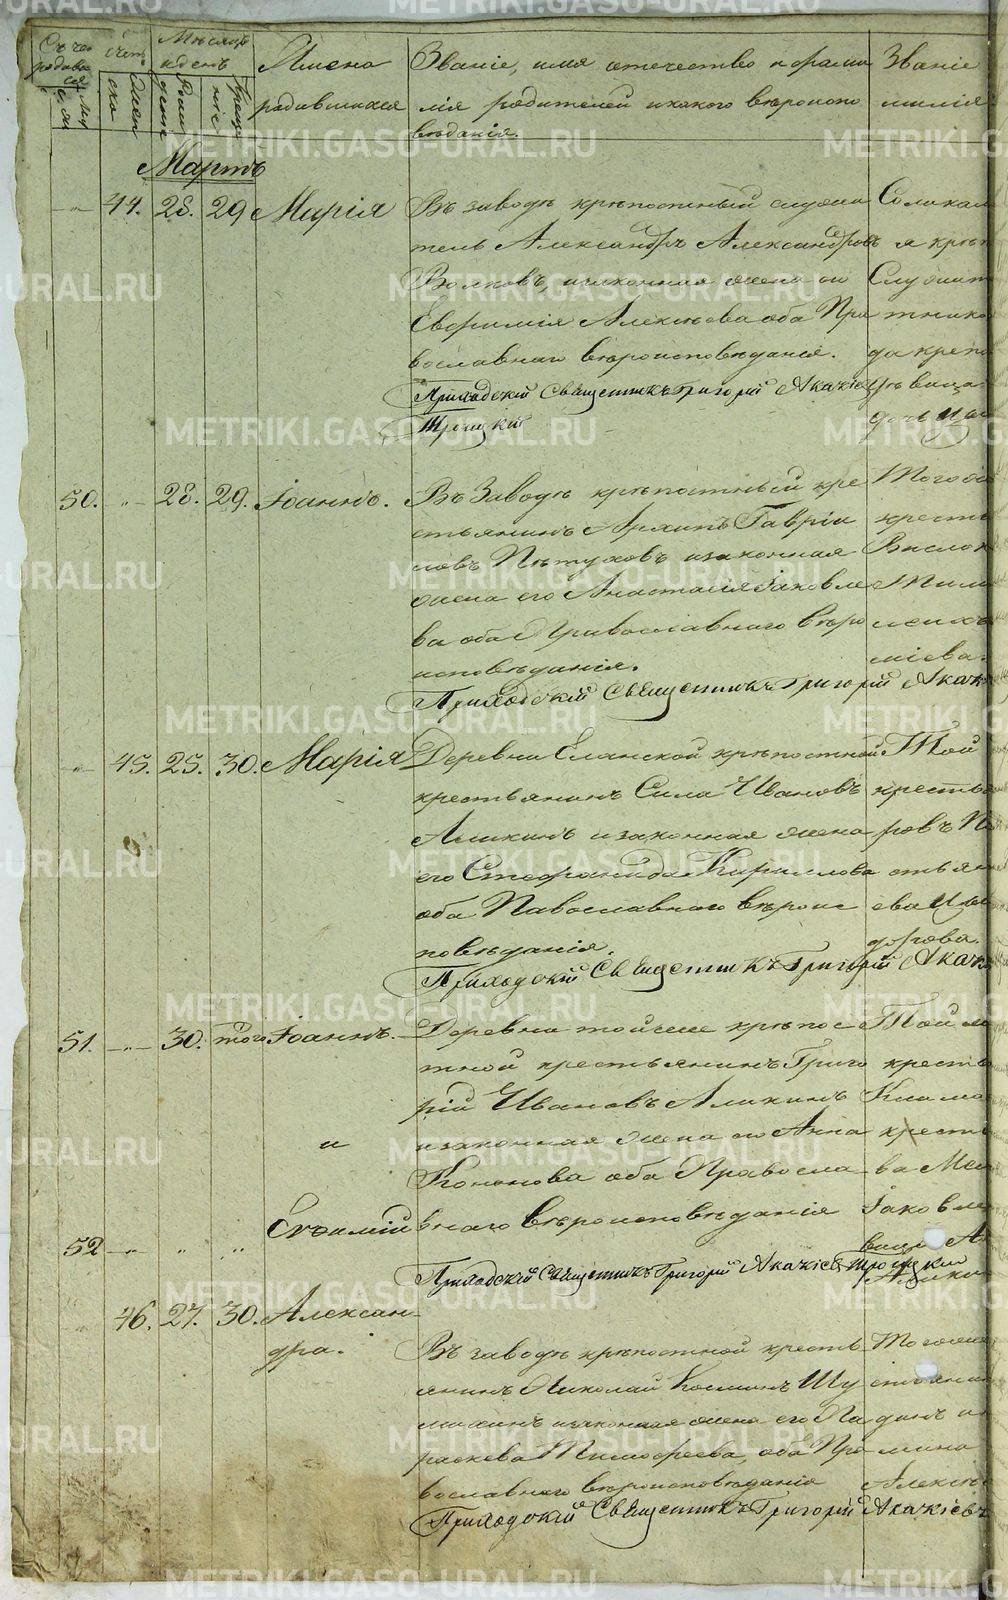 Счетъ
Мѣсяцъ
и день
Имена
родившихся
Званіе, имя отечество и фами
лія родителей и какого вѣроиспо
вѣданія.
Званіе
милія
Мартъ
44. 28. 29 Марія
Въ заводѣ крѣпостный служи
тель Александръ Александровъ
Волковъ, и законная жена его
Евфимія Алексѣева оба Пра
вославнаго вѣроисповѣданія.
Приходскій Священникъ Григорій Акакіев
Троицкій
Соликам
я крѣп
Служит
тнико
да крѣпо
50. 28. 29. Іоаннъ.
Въ Заводѣ крѣпостный кре
стьянинъ Архипъ Гаврiи
ловъ Пѣтуховъ и законная
жена его Анастасія Іаковле
ва оба Православнаго вѣро
исповѣданія.
Приходскій Священникъ Григорій Акакі
Того
кресть
45. 25. 30. Марія
Деревни Еланской крѣпостной
крестьянинъ Сила Ивановъ
Аликинъ и законная жена
его Стефанида Кириллова
оба Павославнаго вѣроис
повѣданія.
Приходскій Священникъ Григорій Акакі
Той
кресть
51. 30. того Іоаннъ.
и
52 Евѳимій
Деревни тойже крѣпос
тной крестьянинъ Григо
рій Ивановъ Аликинъ
и законная жена его Анна
Кононова оба Правосла
внаго вѣроисповѣданія
Приходскій Священникъ Григорій Акакіев Троицкій
Той
кресть
Клима
кресть
Іаковле
46. 27. 30. Алексан
дра.
Въ заводѣ крѣпостной кресть
янинъ Николай Косминъ Шу
михинъ и законная жена его Па
раскева Тимофеева, оба Пра
вославнаго вѣроисповѣданія
Приходскій Священникъ Григорій Акакіевъ
Тогоже
Алексѣ
METRIKI.GASO-URAL.RU